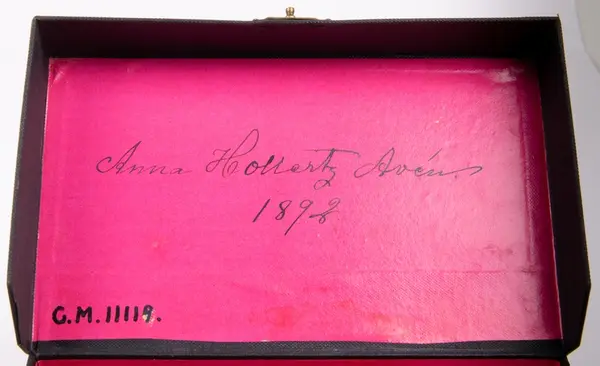 Anna Hollertz Avén
1892
G.M. 11119.